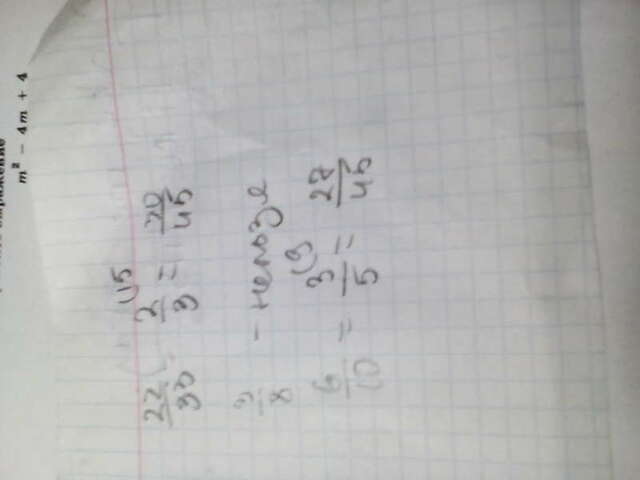 m² − 4m + 4
22/33 2/3 (15 = 30/45
3/8 - нельзя
6/10 = 3/5 (9 = 27/45